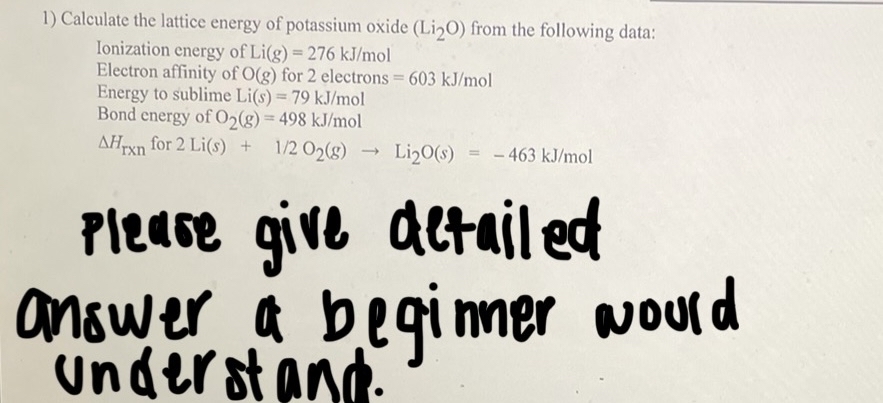 1) Calculate the lattice energy of potassium oxide (Li₂O) from the following data:
Ionization energy of Li(g) = 276 kJ/mol
Electron affinity of O(g) for 2 electrons = 603 kJ/mol
Energy to sublime Li(s) = 79 kJ/mol
Bond energy of O₂(g) = 498 kJ/mol
ΔHrxn for 2 Li(s) + 1/2 O₂(g) → Li₂O(s) = – 463 kJ/mol
Please give detailed
answer a beginner would
understand.